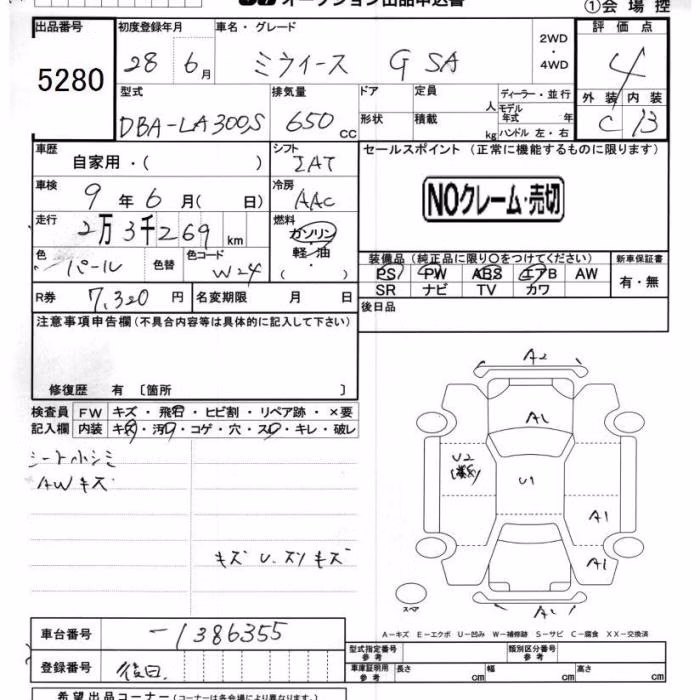 オークション出品申込書
①会場控
出品番号
5280
初度登録年月
28 6月
車名・グレード
ミライース G SA
2WD・4WD
評価点
4
外装 内装
C B
型式
DBA-LA300S
排気量
650 cc
ドア
形状
定員 人
積載 kg
ディーラー・並行
モデル年式 年
ハンドル 左・右
車歴
自家用・( )
シフト
IAT
セールスポイント (正常に機能するものに限ります)
NOクレーム・売切
車検
9年6月( 日)
冷房
AAC
走行
2万3千269 km
燃料
ガソリン
軽・油
・( )
色
パール
色替
色コード
W24
装備品 (純正品に限り〇をつけてください)
PS PW ABS エアB AW
SR ナビ TV カワ
新車保証書
有・無
R券 7,320円
名変期限 月 日
後日品
注意事項申告欄 (不具合内容等は具体的に記入して下さい)
修復歴 有 〔箇所 〕
検査員記入欄
FW キズ・飛石・ヒビ割・リペア跡・×要
内装 キズ・汚れ・コゲ・穴・スレ・キレ・破レ
AWキズ
A2
A1
U2
U1
A1
A1
A1
スペア
A-キズ E-エクボ U-凹み W-補修跡 S-サビ C-腐食 XX-交換済
車台番号
-1386355
登録番号
後日
型式指定番号 参考
類別区分番号 参考
車庫証明用 参考
長さ cm
幅 cm
高さ cm
希望出品コーナー (コーナーは各会場により異なります。)